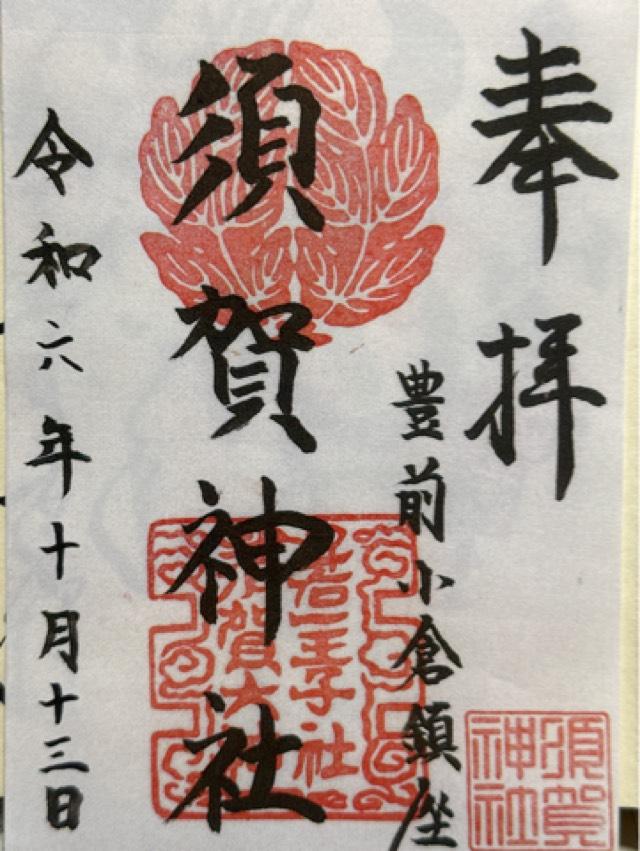 奉拝
豊前小倉鎮座
須賀神社
令和六年十月十三日
若一王子社
須賀大
須賀神社